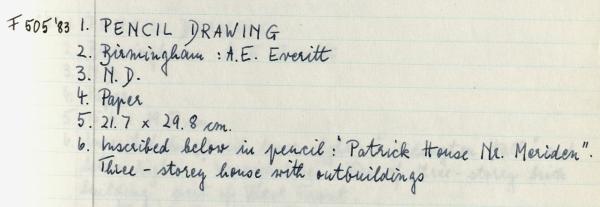 F 505'83 1. PENCIL DRAWING
2. Birmingham : A.E. Everitt
3. N.D.
4. Paper
5. 21.7 x 29.8 cm.
6. Inscribed below in pencil : "Patrick House Nr. Meriden".
Three-storey house with outbuildings